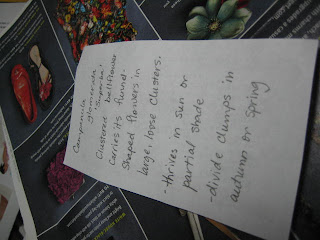 Campanula
glomerata
'Superba'
Clustered bellflower
carries its funnel-
shaped flowers in
large, loose clusters.
-thrives in sun or
partial shade
-divide clumps in
autumn or spring